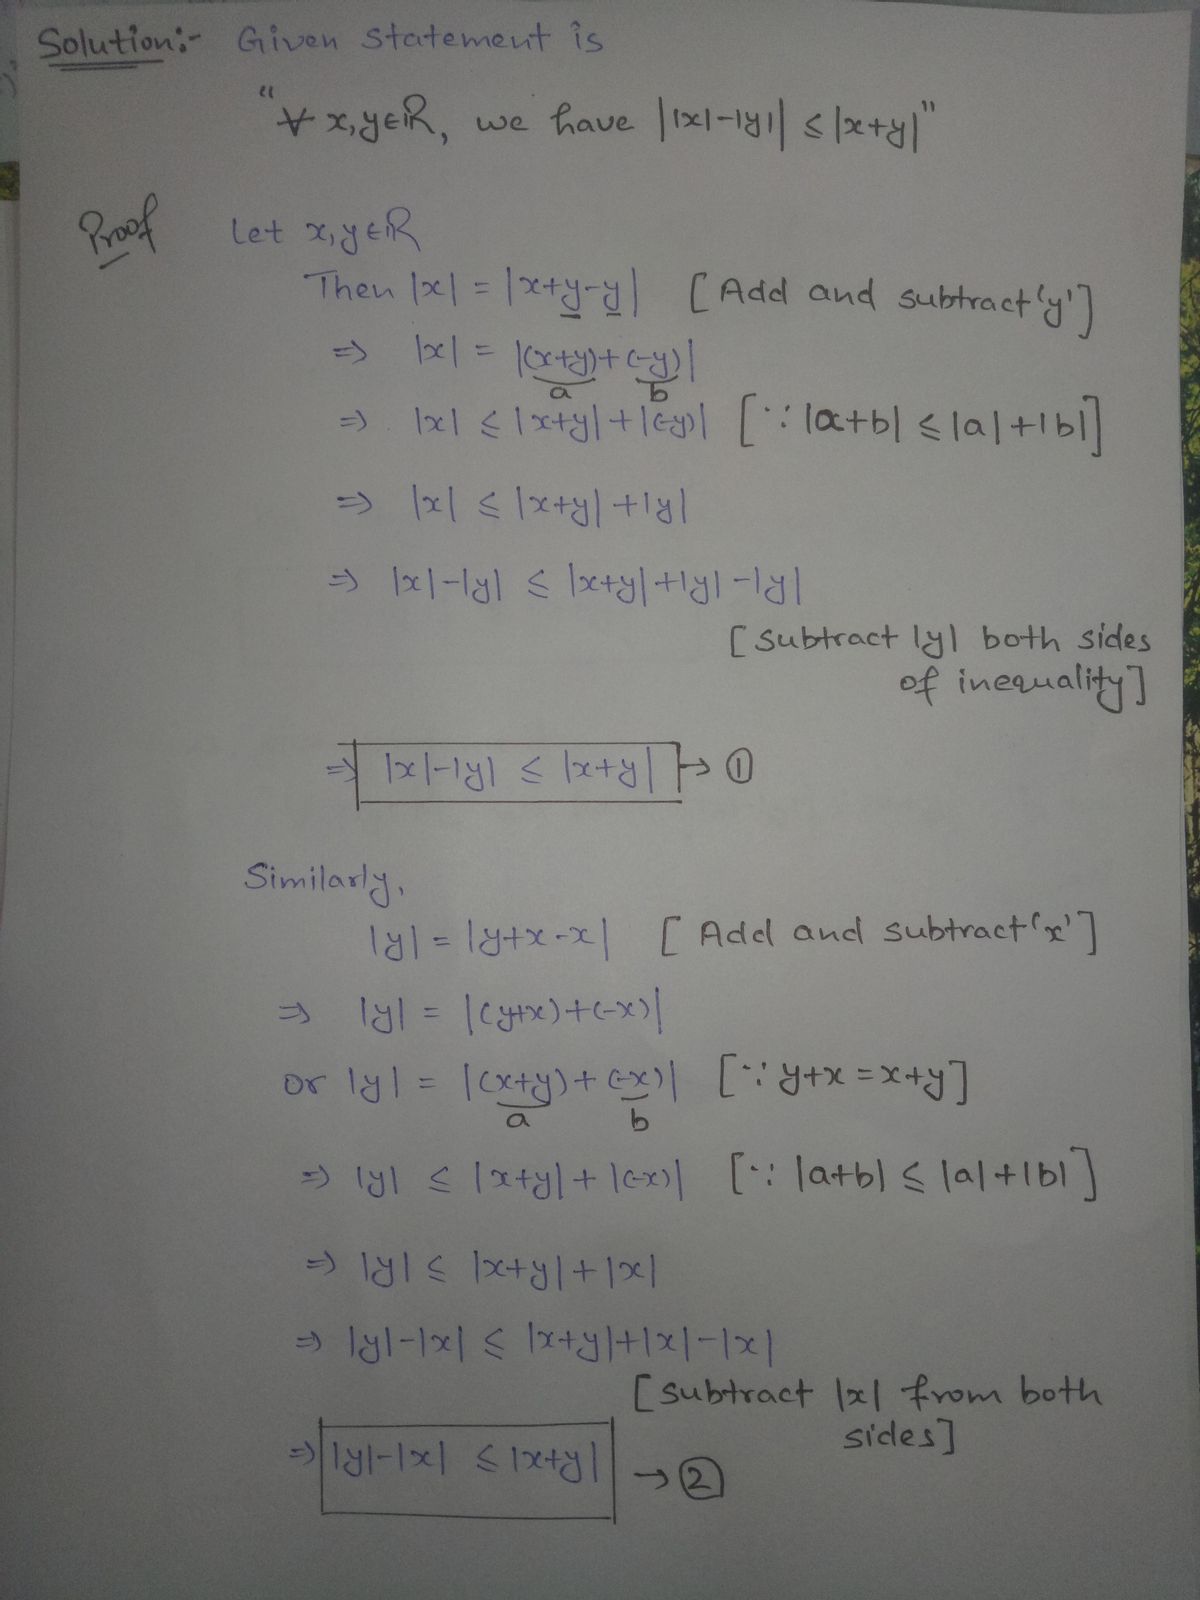 Solution:- Given statement is
"∀ x,y∈ℝ, we have ||x|-|y|| ≤ |x+y|"
Proof Let x,y∈ℝ
Then |x| = |x+y-y| [Add and subtract 'y']
⇒ |x| = |(x+y)+(-y)|
a b
⇒ |x| ≤ |x+y|+|(-y)| [∵ |a+b| ≤ |a|+|b|]
⇒ |x| ≤ |x+y|+|y|
⇒ |x|-|y| ≤ |x+y|+|y|-|y|
[subtract |y| both sides
of inequality]
⇒ |x|-|y| ≤ |x+y| → ①
Similarly,
|y| = |y+x-x| [Add and subtract 'x']
⇒ |y| = |(y+x)+(-x)|
or |y| = |(x+y)+(-x)| [∵ y+x = x+y]
a b
⇒ |y| ≤ |x+y|+|(-x)| [∵ |a+b| ≤ |a|+|b|]
⇒ |y| ≤ |x+y|+|x|
⇒ |y|-|x| ≤ |x+y|+|x|-|x|
[subtract |x| from both
sides]
⇒ |y|-|x| ≤ |x+y| → ②